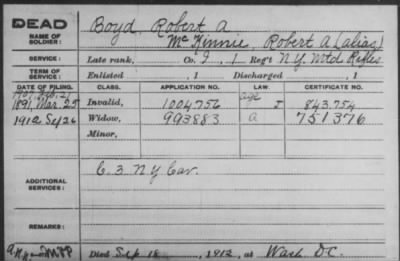 DEAD Boyd, Robert A
NAME OF SOLDIER: McKinnie, Robert A (alias)
SERVICE: Late rank, Co. I, 1 Reg't N.Y. Mtd Rifles
TERM OF SERVICE: Enlisted , 1 Discharged , 1
DATE OF FILING. CLASS. APPLICATION NO. LAW. CERTIFICATE NO.
1907 Feb. 21 Age
1891, Mar. 25 Invalid, 1004756 I 843.754
1912 Sep 26 Widow, 993883 a 751376
Minor,
ADDITIONAL SERVICES: C. 3 N Y Cav.
REMARKS:
Died Sep 18, 1912, at Wash DC.